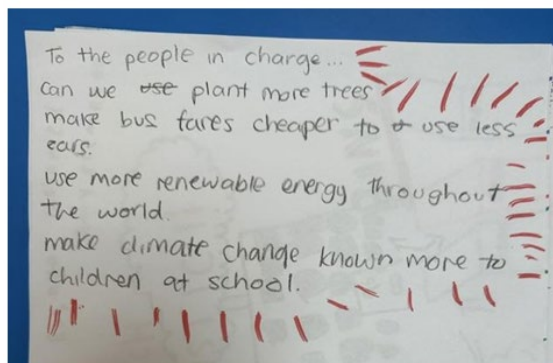 To the people in charge...
can we use plant more trees
make bus fares cheaper to use less
cars.
use more renewable energy throughout
the world.
make climate change known more to
children at school.